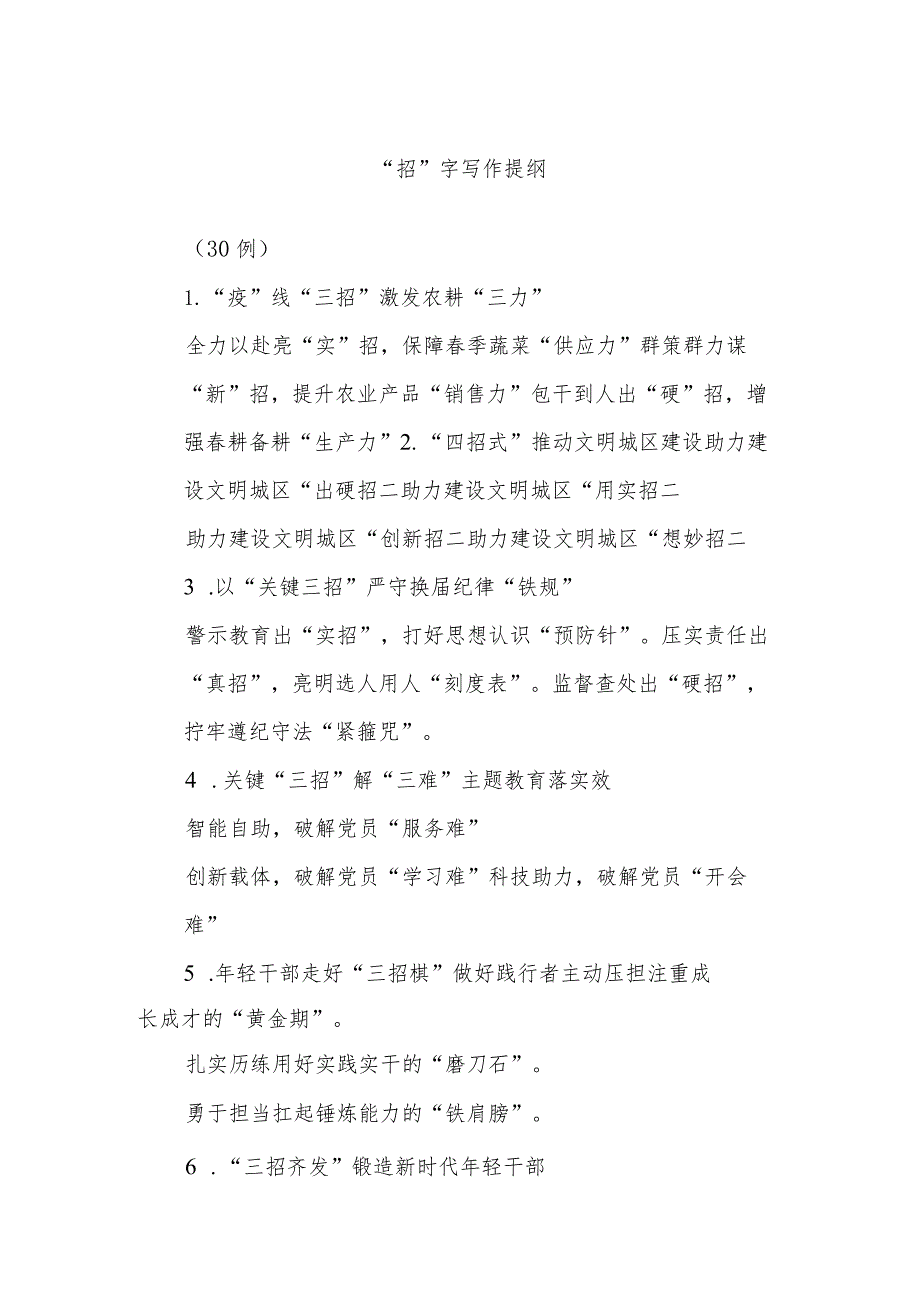 “招”字写作提纲
（30 例）
1. “疫”线“三招”激发农耕“三力”
全力以赴亮“实”招，保障春季蔬菜“供应力”群策群力谋
“新”招，提升农业产品“销售力”包干到人出“硬”招，增
强春耕备耕“生产力”2. “四招式”推动文明城区建设助力建
设文明城区“出硬招二助力建设文明城区“用实招二
助力建设文明城区“创新招二助力建设文明城区“想妙招二
3 .以“关键三招”严守换届纪律“铁规”
警示教育出“实招”，打好思想认识“预防针”。压实责任出
“真招”，亮明选人用人“刻度表”。监督查处出“硬招”，
拧牢遵纪守法“紧箍咒”。
4 .关键“三招”解“三难”主题教育落实效
智能自助，破解党员“服务难”
创新载体，破解党员“学习难”科技助力，破解党员“开会
难”
5 .年轻干部走好“三招棋”做好践行者主动压担注重成
长成才的“黄金期”。
扎实历练用好实践实干的“磨刀石”。
勇于担当扛起锤炼能力的“铁肩膀”。
6 .“三招齐发”锻造新时代年轻干部